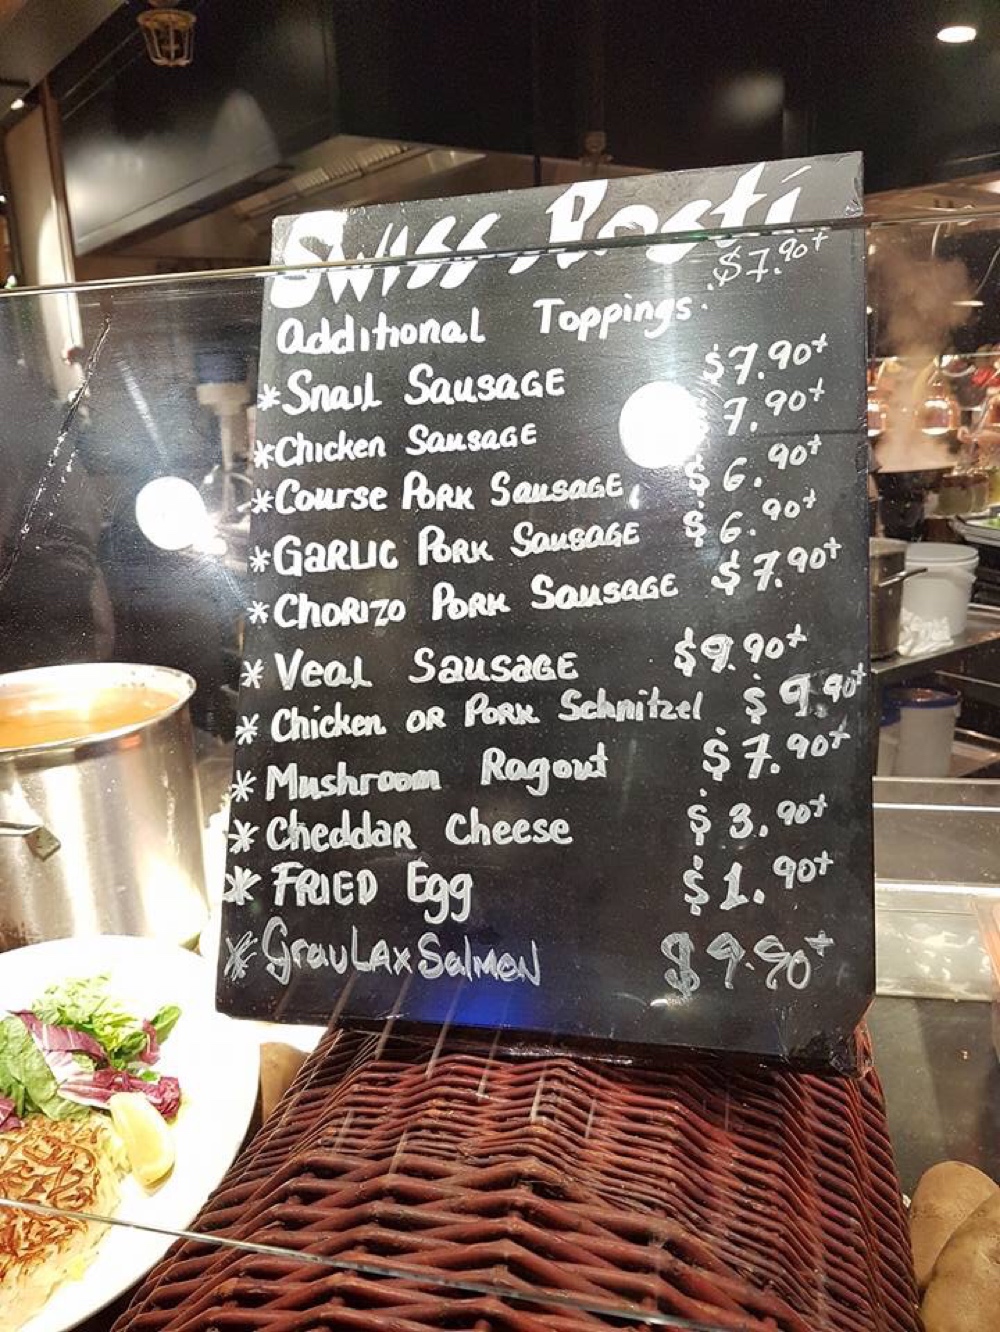 Swiss Rosti
$7.90+
Additional Toppings:
*Snail Sausage $7.90+
*Chicken Sausage 7.90+
*Course Pork Sausage, $6.90+
*Garlic Pork Sausage $6.90+
*Chorizo Pork Sausage $7.90+
* Veal Sausage $9.90+
* Chicken or Pork Schnitzel $9.90+
* Mushroom Ragout $7.90+
* Cheddar Cheese $3.90+
* Fried Egg $1.90+
* Gravlax Salmon $9.90+